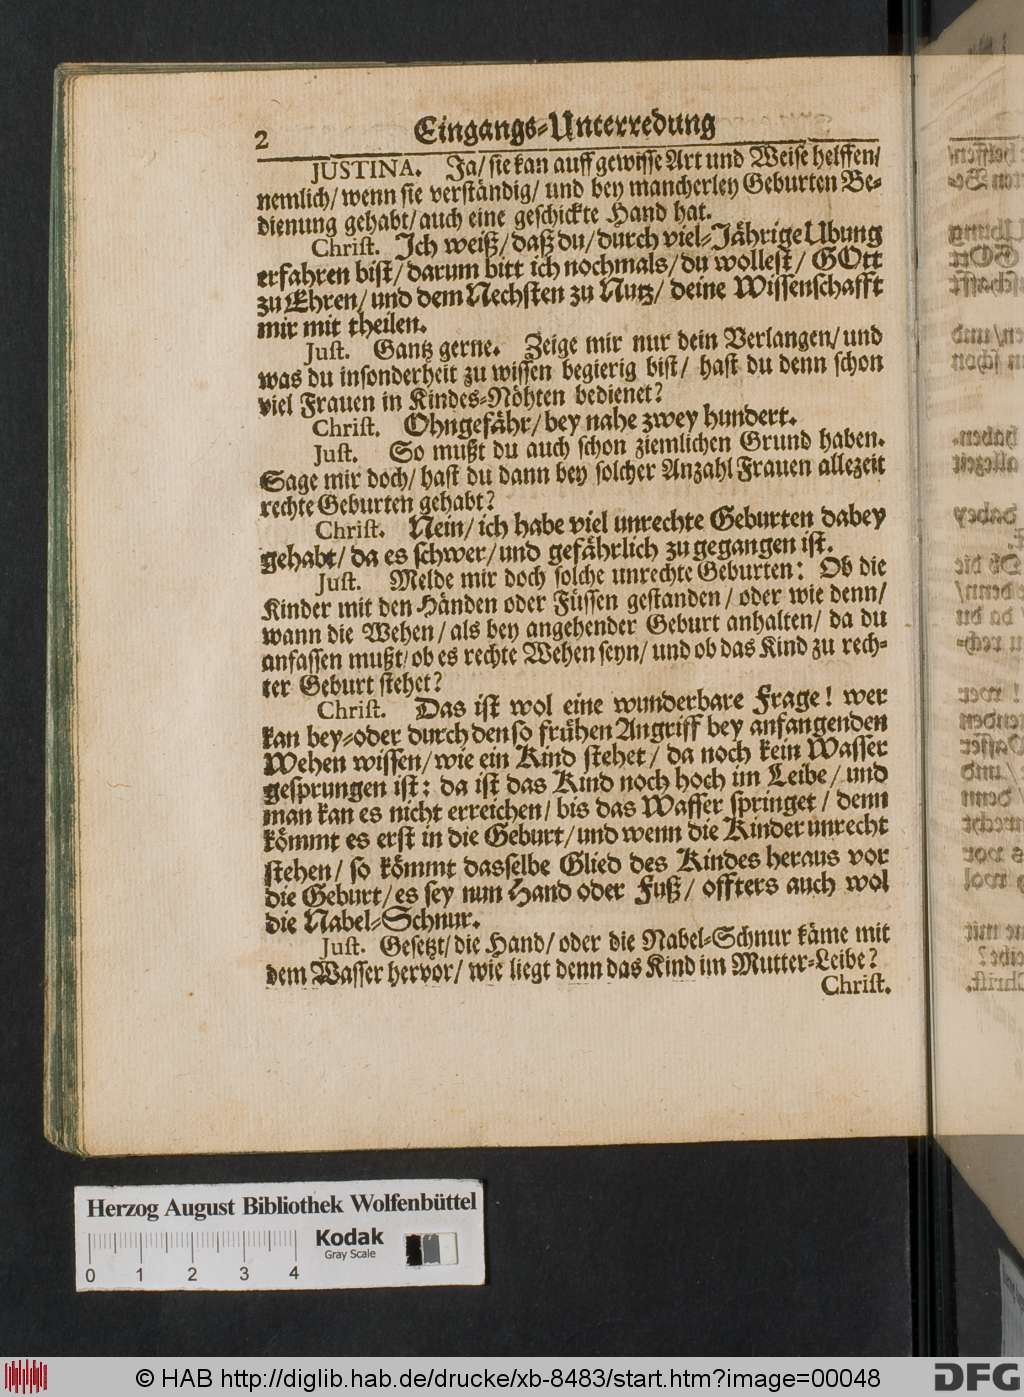 2 Eingangs-Unterredung
JUSTINA. Ja/ sie kan auff gewisse Art und Weise helffen/
nemlich/ wenn sie verständig/ und bey mancherley Geburten Be-
dienung gehabt/ auch eine geschickte Hand hat.
Christ. Ich weiß/ daß du/ durch viel-Jährige Ubung
erfahren bist/ darum bitt ich nochmals/ du wollest/ GOtt
zu Ehren/ und dem Nechsten zu Nutz/ deine Wissenschafft
mir mit theilen.
Just. Gantz gerne. Zeige mir nur dein Verlangen/ und
was du insonderheit zu wissen begierig bist/ hast du denn schon
viel Frauen in Kindes-Nöhten bedienet?
Christ. Ohngefähr/ bey nahe zwey hundert.
Just. So mußt du auch schon ziemlichen Grund haben.
Sage mir doch/ hast du dann bey solcher Anzahl Frauen allezeit
rechte Geburten gehabt?
Christ. Nein/ ich habe viel unrechte Geburten dabey
gehabt/ da es schwer/ und gefährlich zu gegangen ist.
Just. Melde mir doch solche unrechte Geburten: Ob die
Kinder mit den Händen oder Füssen gestanden/ oder wie denn/
wann die Wehen/ als bey angehender Geburt anhalten/ da du
anfassen mußt/ ob es rechte Wehen seyn/ und ob das Kind zu rech-
ter Geburt stehet?
Christ. Das ist wol eine wunderbare Frage! wer
kan bey-oder durch den so frühen Angriff bey anfangenden
Wehen wissen/ wie ein Kind stehet/ da noch kein Wasser
gesprungen ist: da ist das Kind noch hoch im Leibe/ und
man kan es nicht erreichen/ bis das Wasser springet/ denn
kömmt es erst in die Geburt/ und wenn die Kinder unrecht
stehen/ so kömmt dasselbe Glied des Kindes heraus vor
die Geburt/ es sey nun Hand oder Fuß/ offters auch wol
die Nabel-Schnur.
Just. Gesetzt/ die Hand/ oder die Nabel-Schnur käme mit
dem Wasser hervor/ wie liegt denn das Kind im Mutter-Leibe?
Christ.
Herzog August Bibliothek Wolfenbüttel
Kodak
Gray Scale
0 1 2 3 4
© HAB http://diglib.hab.de/drucke/xb-8483/start.htm?image=00048
DFG